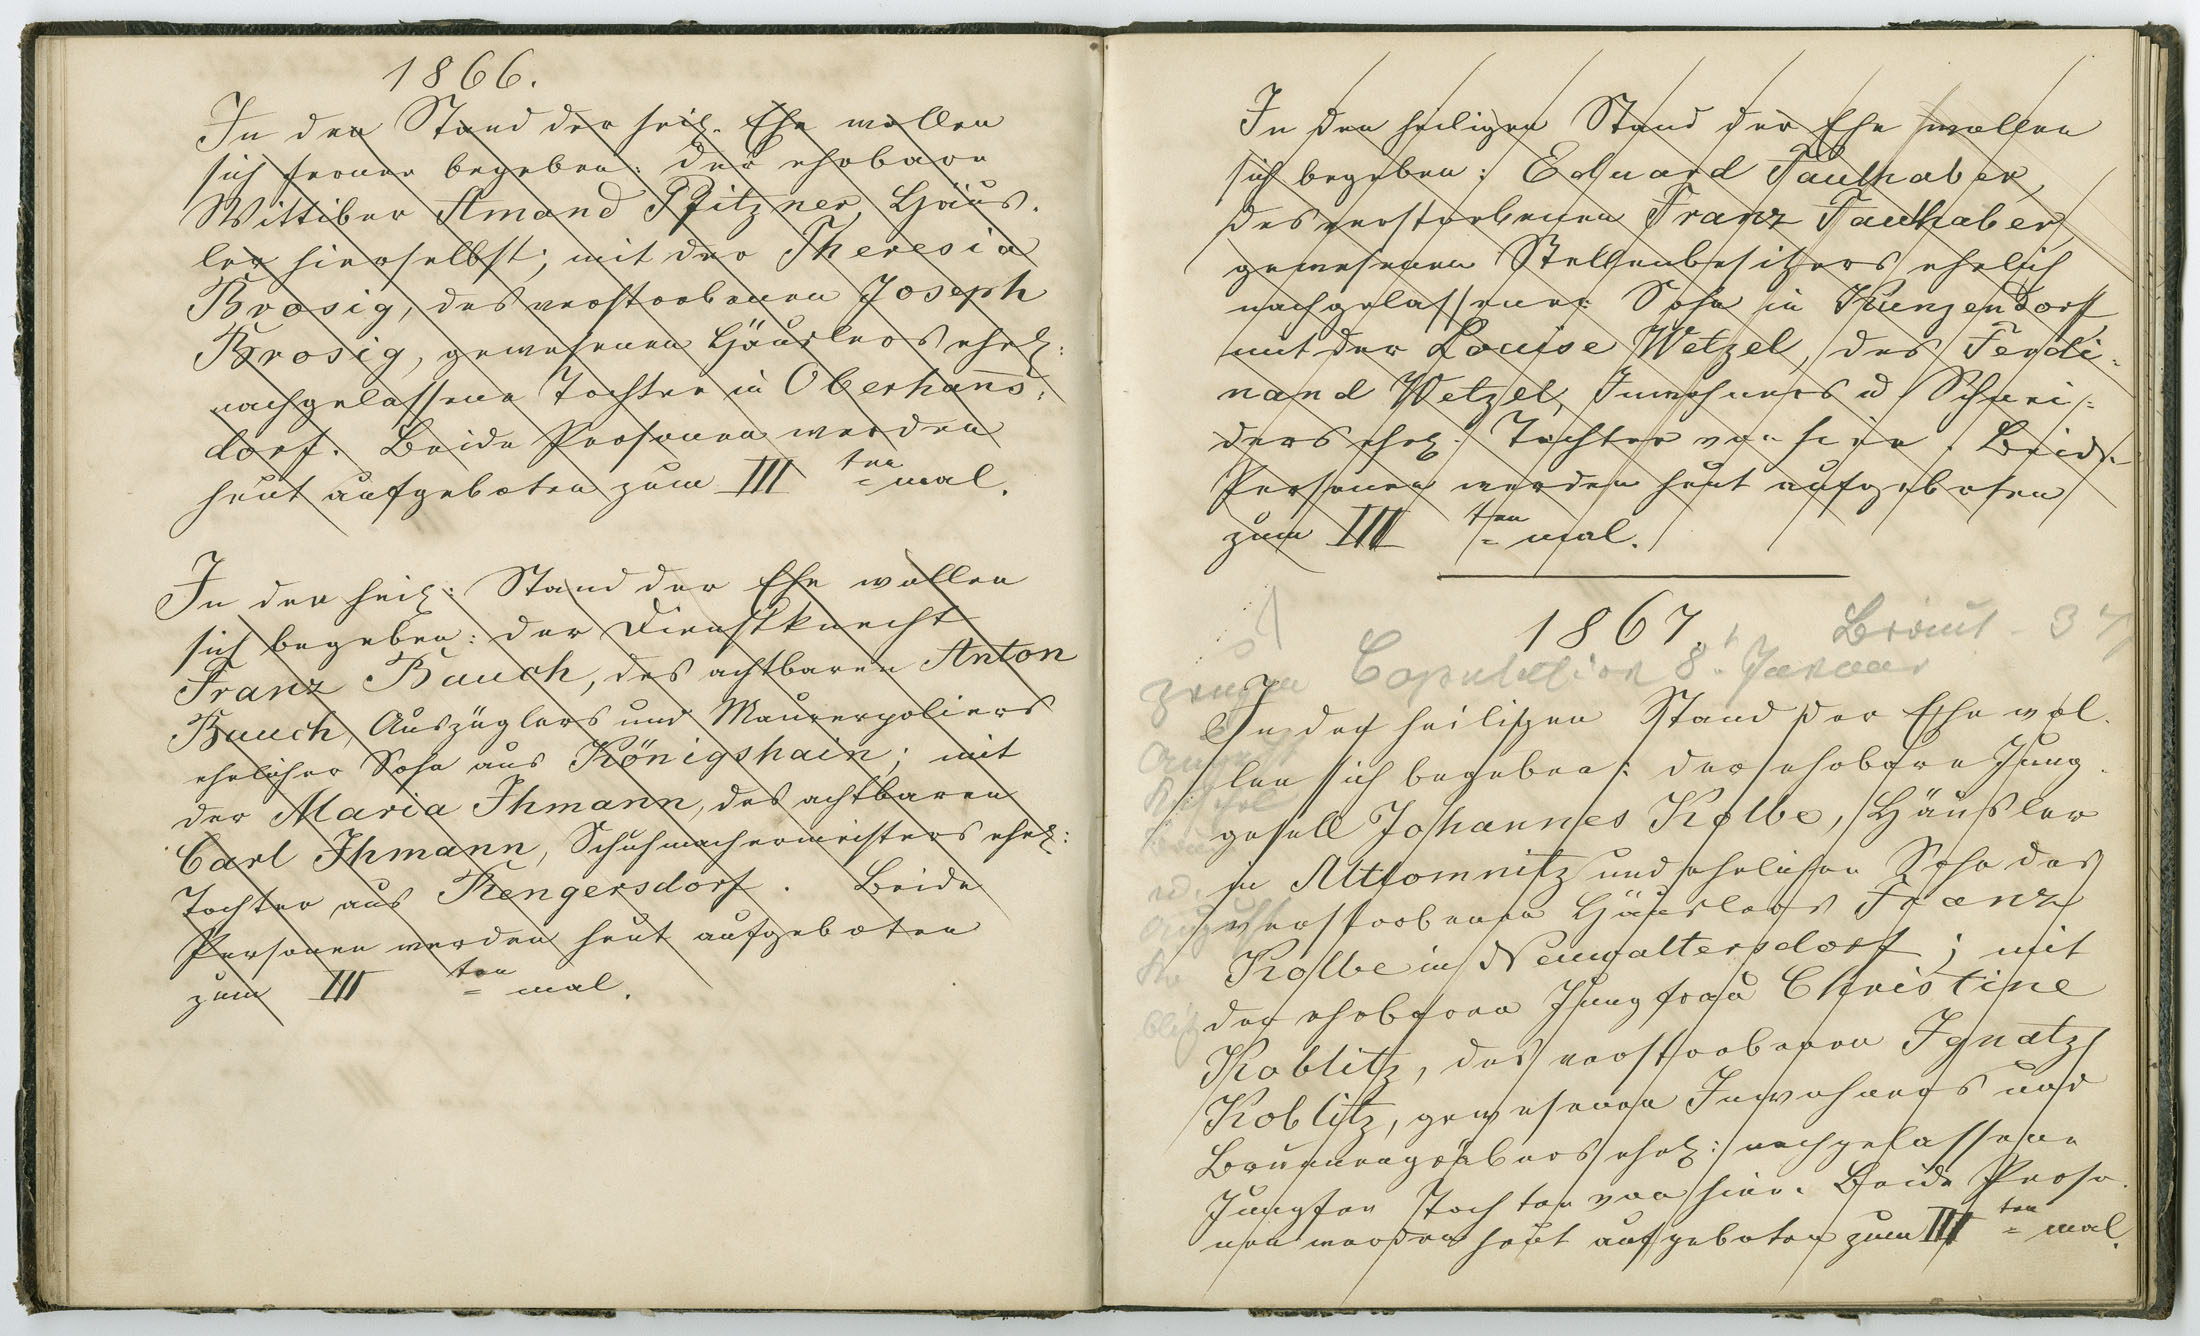 1866.
In den Stand der heil. Ehe wollen
sich ferner begeben: der ehrbare
Wittiber Amand Pfitzner, Häus-
ler hierselbst; mit der Theresia
Brosig, des verstorbenen Joseph
Brosig, gewesenen Häuslers ehel:
nachgelassene Tochter in Oberhanns-
dorf. Beide Personen werden
heut aufgeboten zum III ten mal.
In den heil: Stand der Ehe wollen
sich begeben: der Dienstknecht
Franz Bauch, des achtbaren Anton
Bauch, Auszüglers und Maurerpoliers
ehelicher Sohn aus Königshain; mit
der Maria Ihmann, des achtbaren
Carl Ihmann, Schuhmachermeisters ehel:
Tochter aus Rengersdorf. Beide
Personen werden heut aufgeboten
zum III ten mal.
In den heiligen Stand der Ehe wollen
sich begeben: Eduard Tauthaber,
des verstorbenen Franz Tauthaber,
gewesenen Stellenbesitzers ehelich
nachgelassener Sohn in Kunzendorf
mit der Louise Wetzel, des Ferdi-
nand Wetzel, Inwohners u Schnei-
ders ehel. Tochter von hier. Beide
Personen werden heut aufgeboten
zum III ten mal.
1867. Braut 37
Zeugen Copulation 8t Januar
In den heiligen Stand der Ehe wol-
len sich begeben: der ehrbare Jung-
gesell Johannes Kolbe, Häusler
in Altlomnitz und ehelicher Sohn des
verstorbenen Häuslers Franz
Kolbe in Neuwaltersdorf; mit
der ehrbaren Jungfrau Christine
Koblitz, des verstorbenen Ignatz
Koblitz, gewesenen Inwohners und
Brunnengräbers ehel: nachgelassene
Jungfer Tochter von hier. Beide Perso-
nen werden heut aufgeboten zum III ten mal.
August
u.
August
Ko
blitz